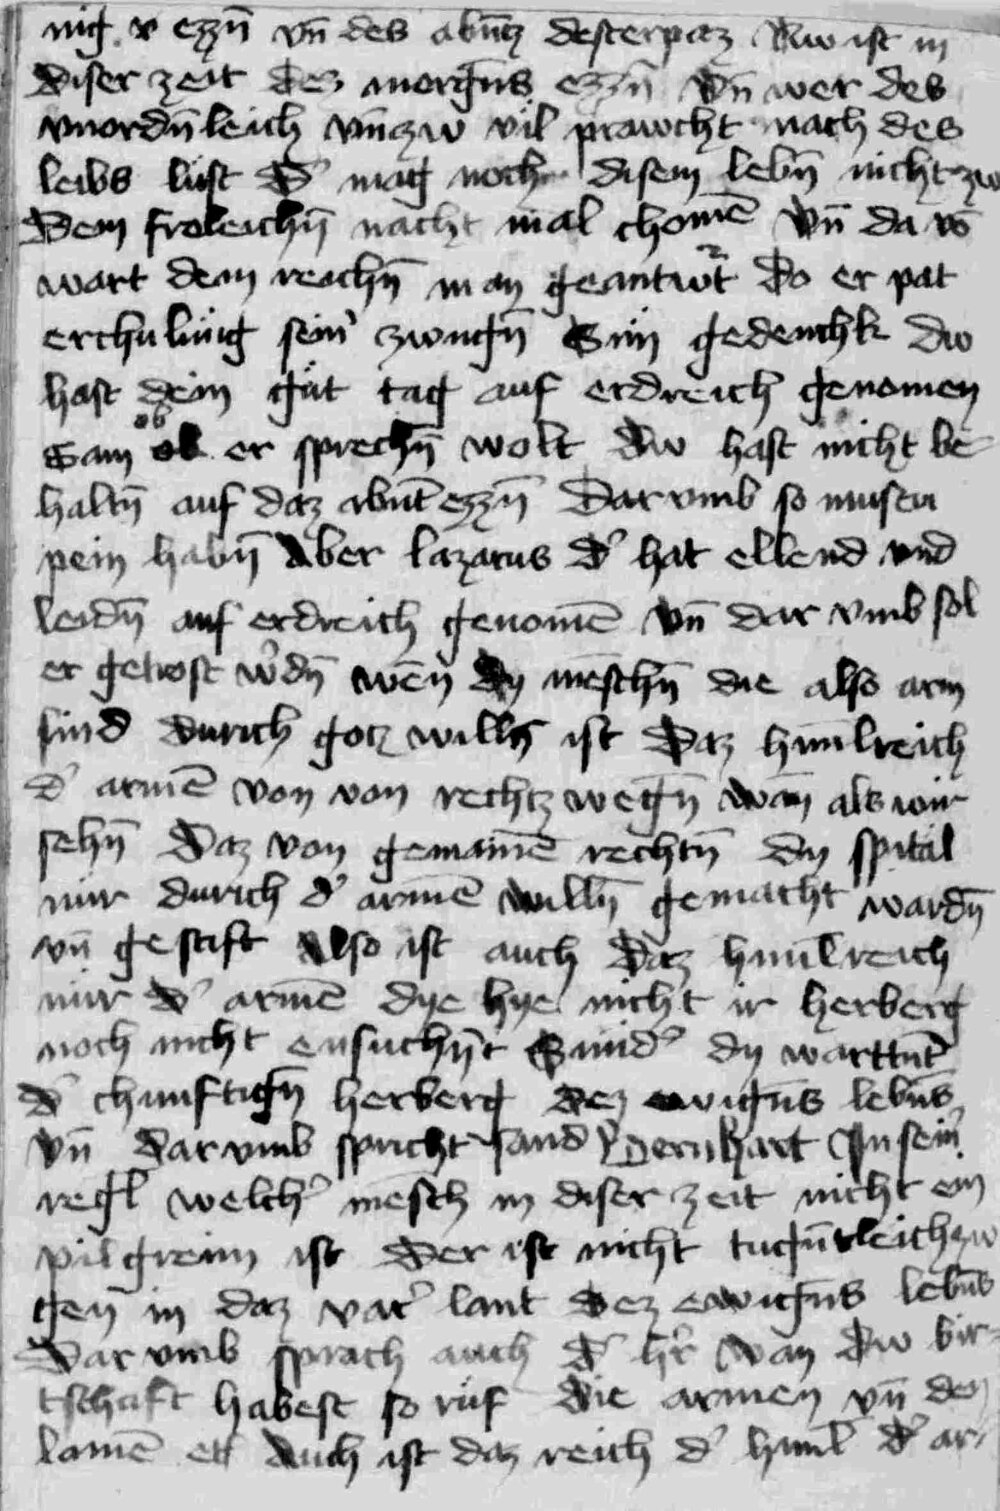 nig v ezzn̄ vn̄ des abūtz desterpaz Nw ist in
diser zeit dez morgēns ezzn̄ Vn̄ wer des
vnordn̄leich vn̄tzw vil prawcht nach des
leibs lust d̾ mag noch disem lebn̄ nicht zw
dem froleichn̄ nacht mal chomē Vn̄ da vō
wart dem reichn̄ man geantw̾t do er pat
erchulūg sein̾ zwngn̄ Sun gedenchk dw
hast dein gůt tag auf erdreich genomen
Sam ob er sprechn̄ wolt dw hast nicht be
haltn̄ auf daz abūt ezzn̄ Dar vmb so mustu
pein habn̄ Aber lazarus d̾ hat ellend vnd
leidn̄ auf erdreich genomē Vn̄ dar vmb sol
er getrost w̾dn̄ wēn dy mēschn̄ die also arm
sind durich gotz willn̄ ist daz himlreich
d̾ armē von von rechtz wegn̄ wān als wir
sehn̄ daz von gemainē rechtn̄ dy spital
nur durich d̾ armē willn̄ gemacht wardn̄
vn̄ gestift Also ist auch daz himlreich
nur d̾ armē dye hye nicht ir herberg
noch nicht ensuchn̄t Sund̾ dy warttūt
d̾ chunftign̄ herberg dez ewign̄s lebn̄s
Vn̄ dar vmb spricht sand Bernhart In sein̾
regl welch̾ mēsch in diser zeit nicht ein
pilgreim ist der ist nicht tugn̄tleich zw
gen̄ in daz vat̾ lant dez ewign̄s lebn̄s
Dar vmb sprach auch d̾ h̾r Wan dw bir-
tschaft habest so růf die armen vn̄ den
lamē etc Auch ist daz reich d̾ himl d̾ ar-